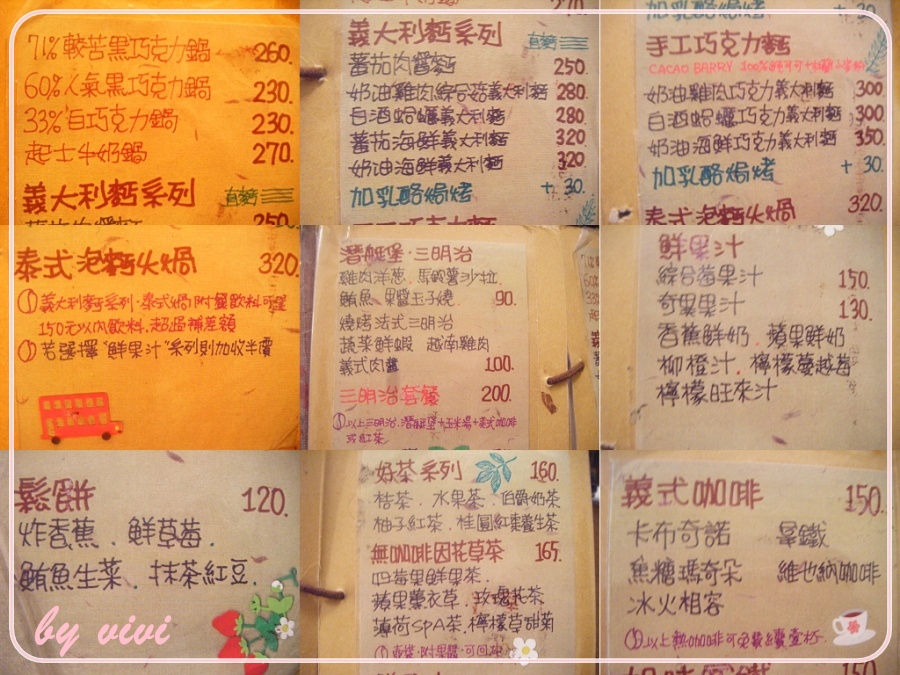 71%較苦黑巧克力鍋 260.
60%人氣黑巧克力鍋 230.
33%白巧克力鍋 230.
起士牛奶鍋 270.
義大利麵系列 直麵
250
義大利麵系列 直麵
蕃茄肉醬麵 250.
奶油雞肉綜合菇義大利麵 280.
白酒蛤蠣義大利麵 280
蕃茄海鮮義大利麵 320
奶油海鮮義大利麵 320
加乳酪焗烤 +30.
加乳酪焗烤 +30.
手工巧克力麵
CACAO BARRY 100%純可可+
奶油雞肉巧克力義大利麵 300
白酒蛤蠣巧克力義大利麵 300
奶油海鮮巧克力義大利麵 350
加乳酪焗烤 +30.
泰式泡麵火鍋 320.
泰式泡麵火鍋 320.
①義大利麵系列.泰式鍋附餐飲料可選
150元以內飲料.超過補差額
②若選擇"鮮果汁"系列則加收半價
潛艇堡.三明治
雞肉洋蔥.馬鈴薯沙拉.
鮪魚.果醬玉子燒 90.
燒烤法式三明治
蔬菜鮮蝦 越南雞肉
義式肉醬 100.
三明治套餐 200.
①以上三明治.潛艇堡+玉米湯+美式咖啡
或紅茶
鮮果汁
綜合莓果汁 150.
奇異果汁 130.
香蕉鮮奶.蘋果鮮奶
柳橙汁.檸檬蔓越莓
檸檬旺來汁
鬆餅 120.
炸香蕉.鮮草莓.
鮪魚生菜.抹茶紅豆.
by vivi
好茶系列 160.
桔茶.水果茶.伯爵奶茶
柚子紅茶.桂圓紅棗養生茶
無咖啡因花草茶 165.
四莓果鮮果茶.
蘋果薰衣草.玫瑰花茶
薄荷SPA茶.檸檬草甜菊
①壺裝.附果醬.可回沖
義式咖啡 150.
卡布奇諾 拿鐵
焦糖瑪奇朵 維也納咖啡
冰火相容
①以上熱咖啡可免費續壹杯.
150